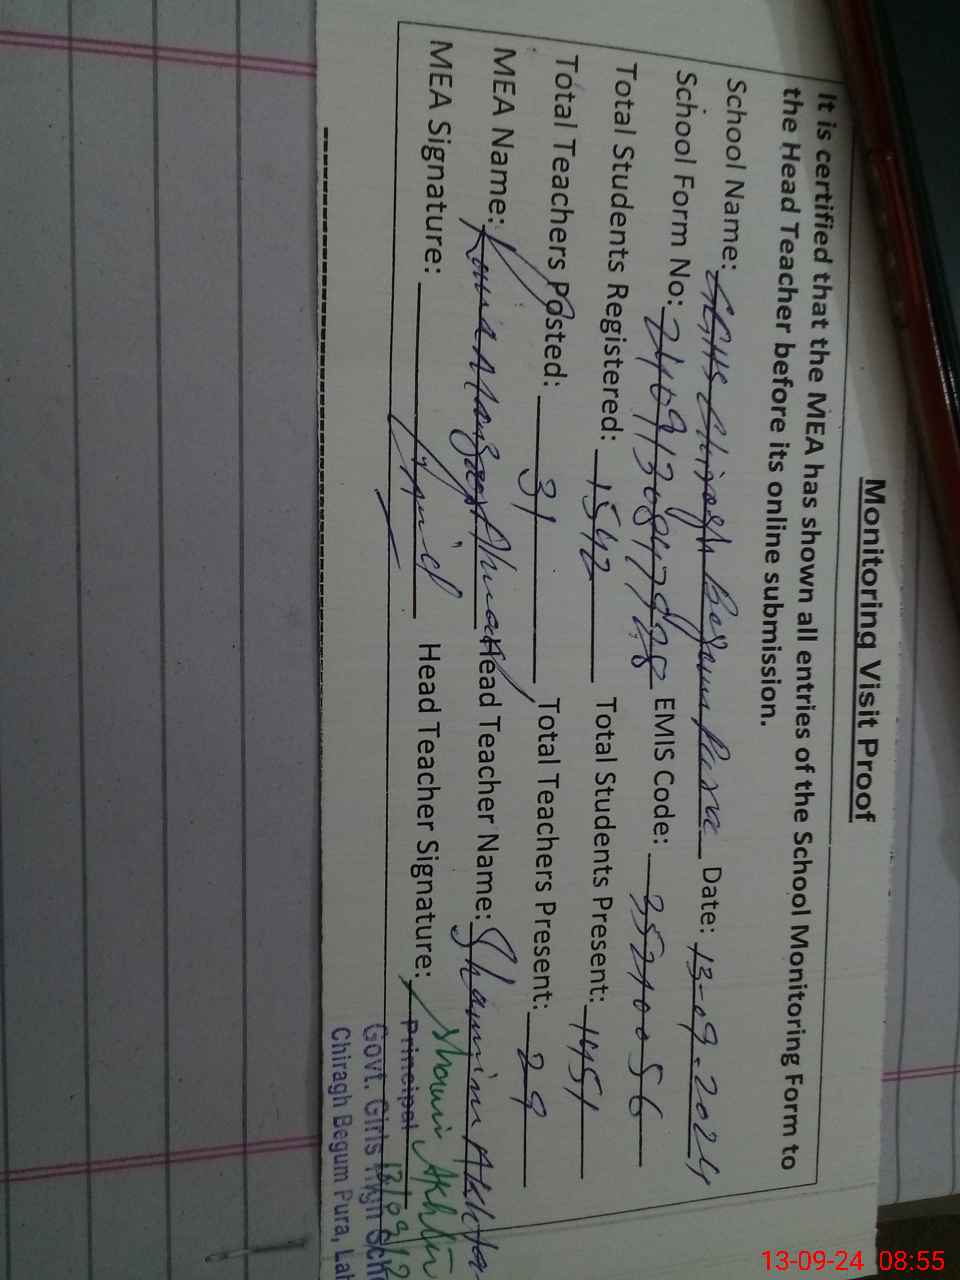 Monitoring Visit Proof
It is certified that the MEA has shown all entries of the School Monitoring Form to
the Head Teacher before its online submission.
School Name: GGHS Chiragh Begum Pura Date: 13-09-2024
School Form No: EMIS Code: 35210056
Total Students Registered: 1542 Total Students Present: 1451
Total Teachers Posted: 31 Total Teachers Present: 29
MEA Name: Ahmad Head Teacher Name: Shamim Akhtar
MEA Signature: Head Teacher Signature: Shamim Akhtar
Principal 13/09/
Govt. Girls High Sch
Chiragh Begum Pura, Lah
13-09-24 08:55